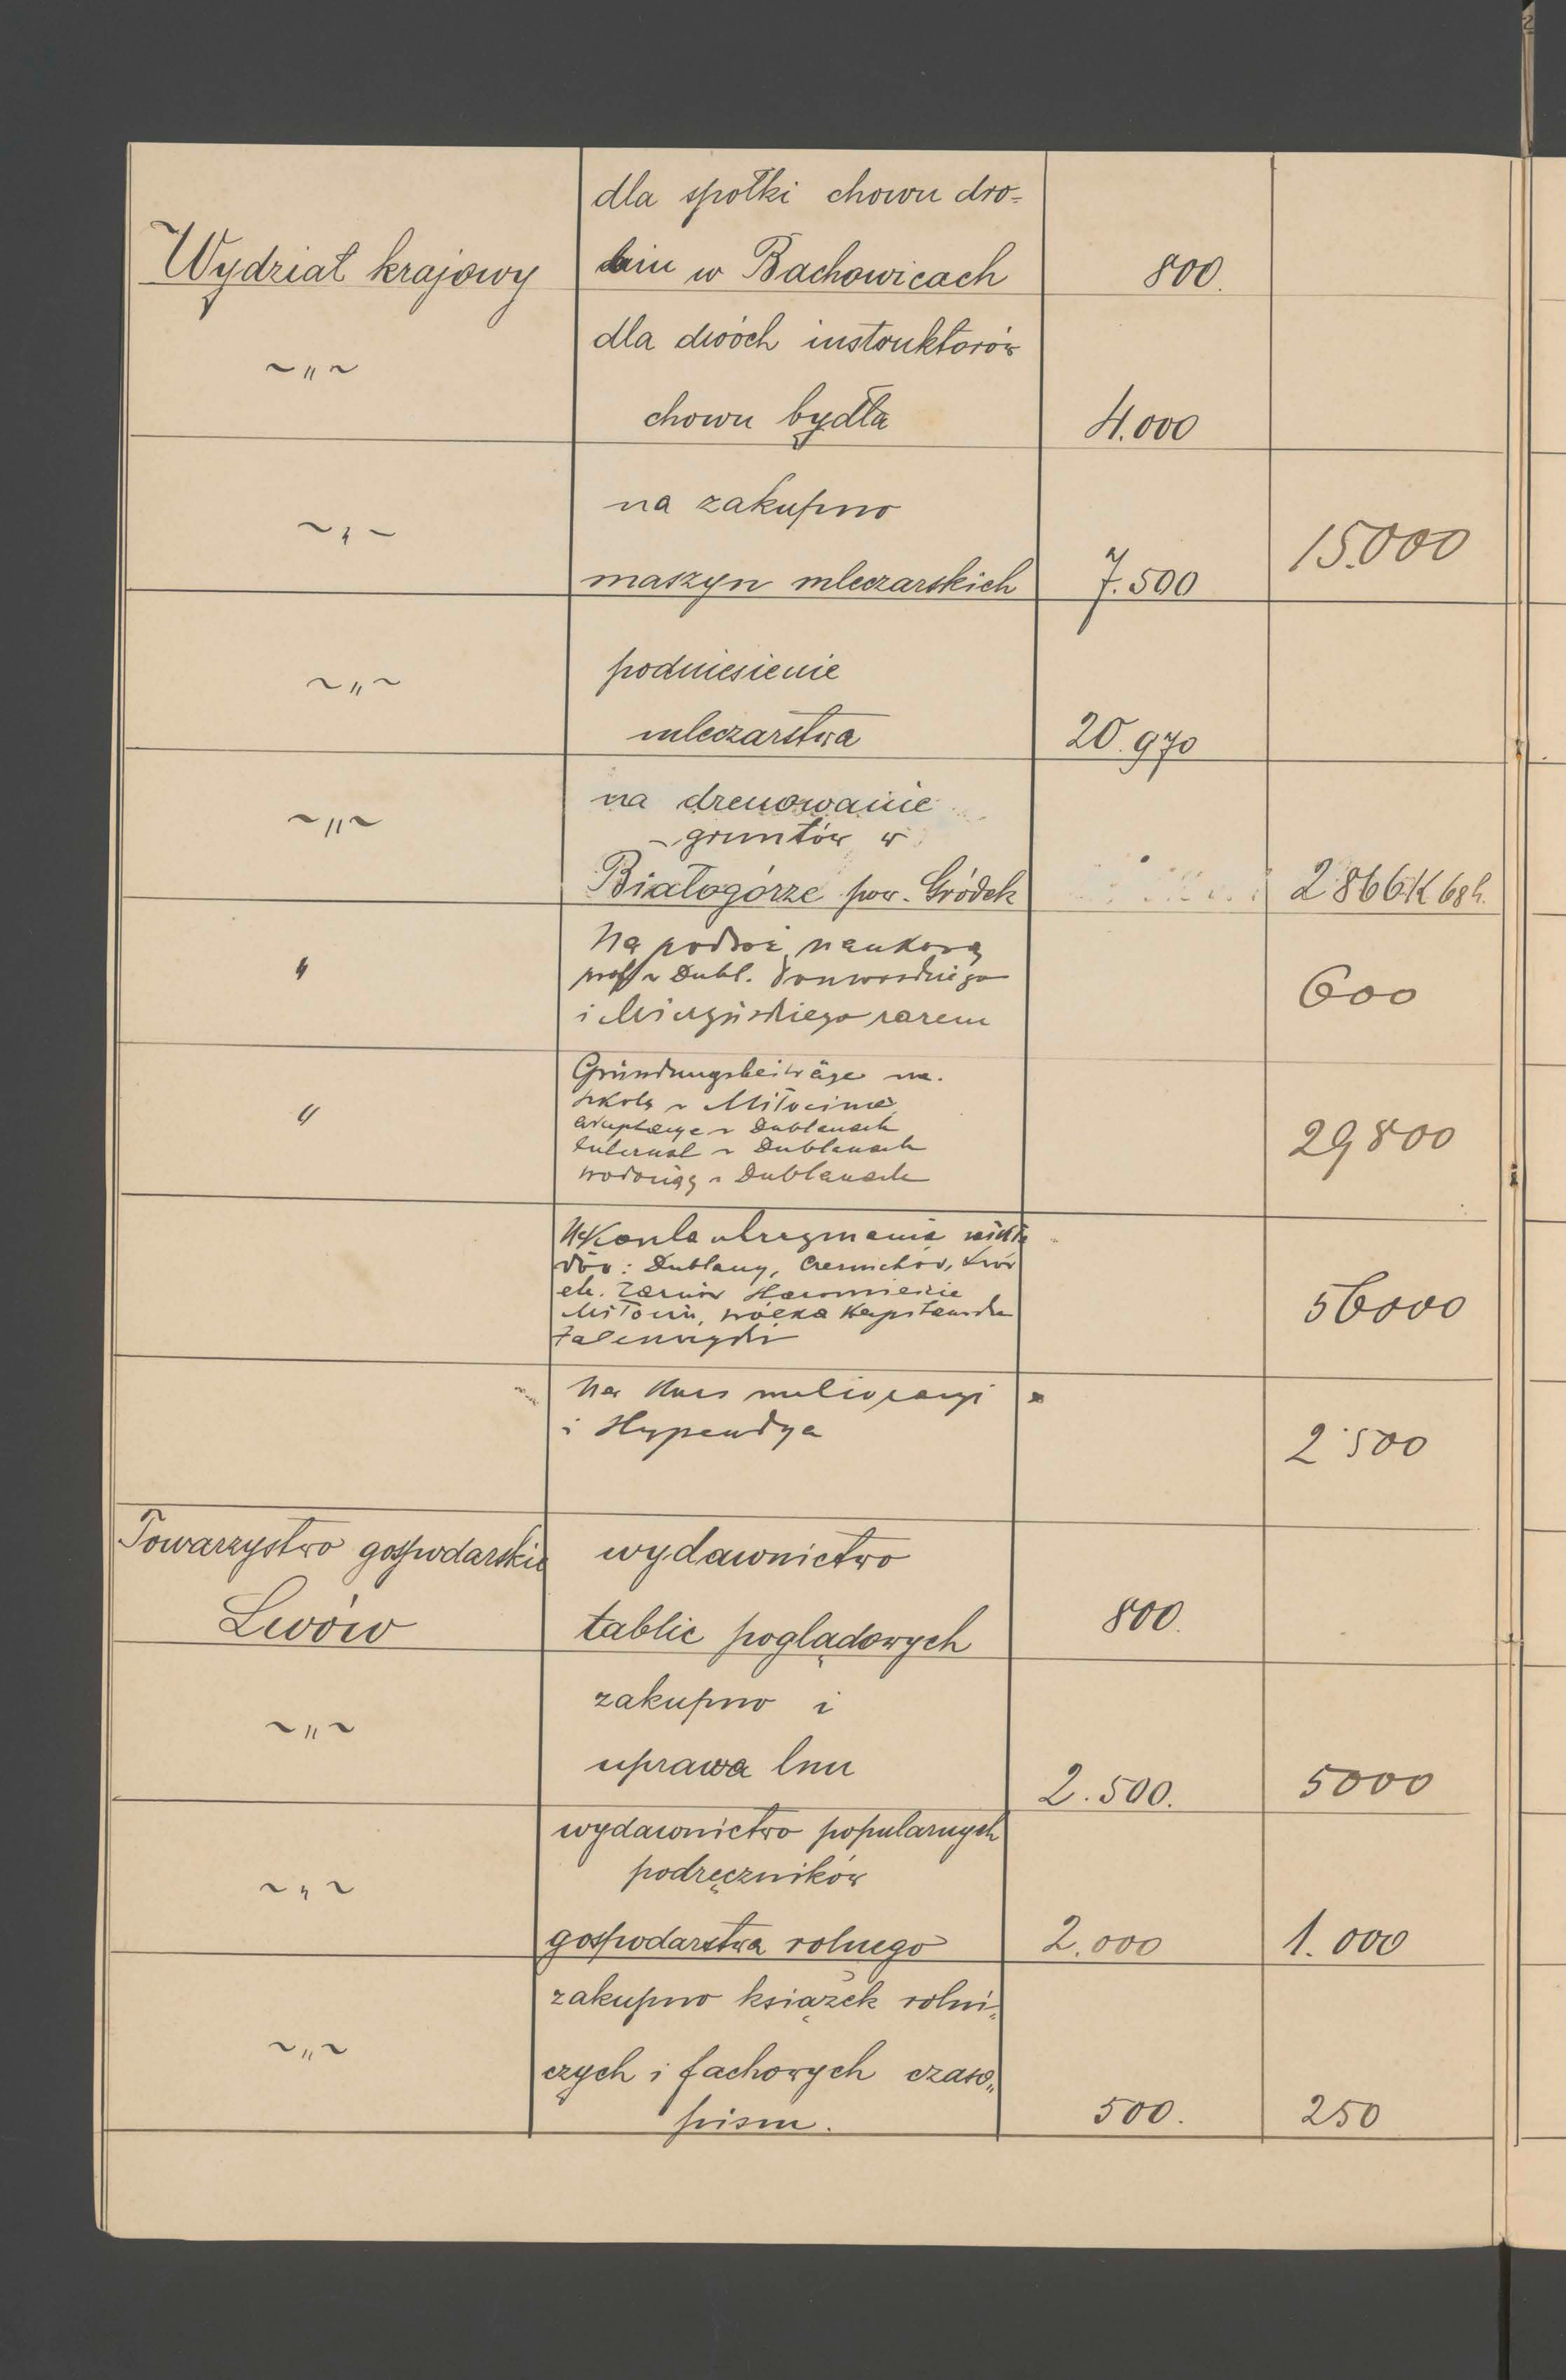 dla spółki chowu dro-
Wydział krajowy biu w Bachowicach 800.
dla dwóch instruktorów
~ " ~
chowu bydła 4.000
na zakupno
~ " ~ 15.000
maszyn mleczarskich 7.500
podniesienie
~ " ~
mleczarstwa 20.970
na drenowanie
~ " ~ gruntów w
Białogórze pow. Gródek 2866K 68h.
Na podroż naukową
" prof w Dubl. 600
i zarem
Gründungsbeiträge na.
szkołę w Miłocinie
" w Dublanach 29800
Internat w Dublanach
wodociąg w Dublanach
Na utrzymania
dów: Dublany, Czernichów, Lwów
etc. 56000
Miłocin, wólka
Na Kurs melioracyi
i Stypendya 2500
Towarzystwo gospodarskie wydawnictwo
Lwów tablic poglądowych 800.
zakupno i
~ " ~
uprawa lnu 2.500. 5000
wydawnictwo popularnych
podręczników
~ " ~
gospodarstwa rolnego 2.000 1.000
zakupno książek rolni-
~ " ~
czych i fachowych czaso"
pism. 500. 250